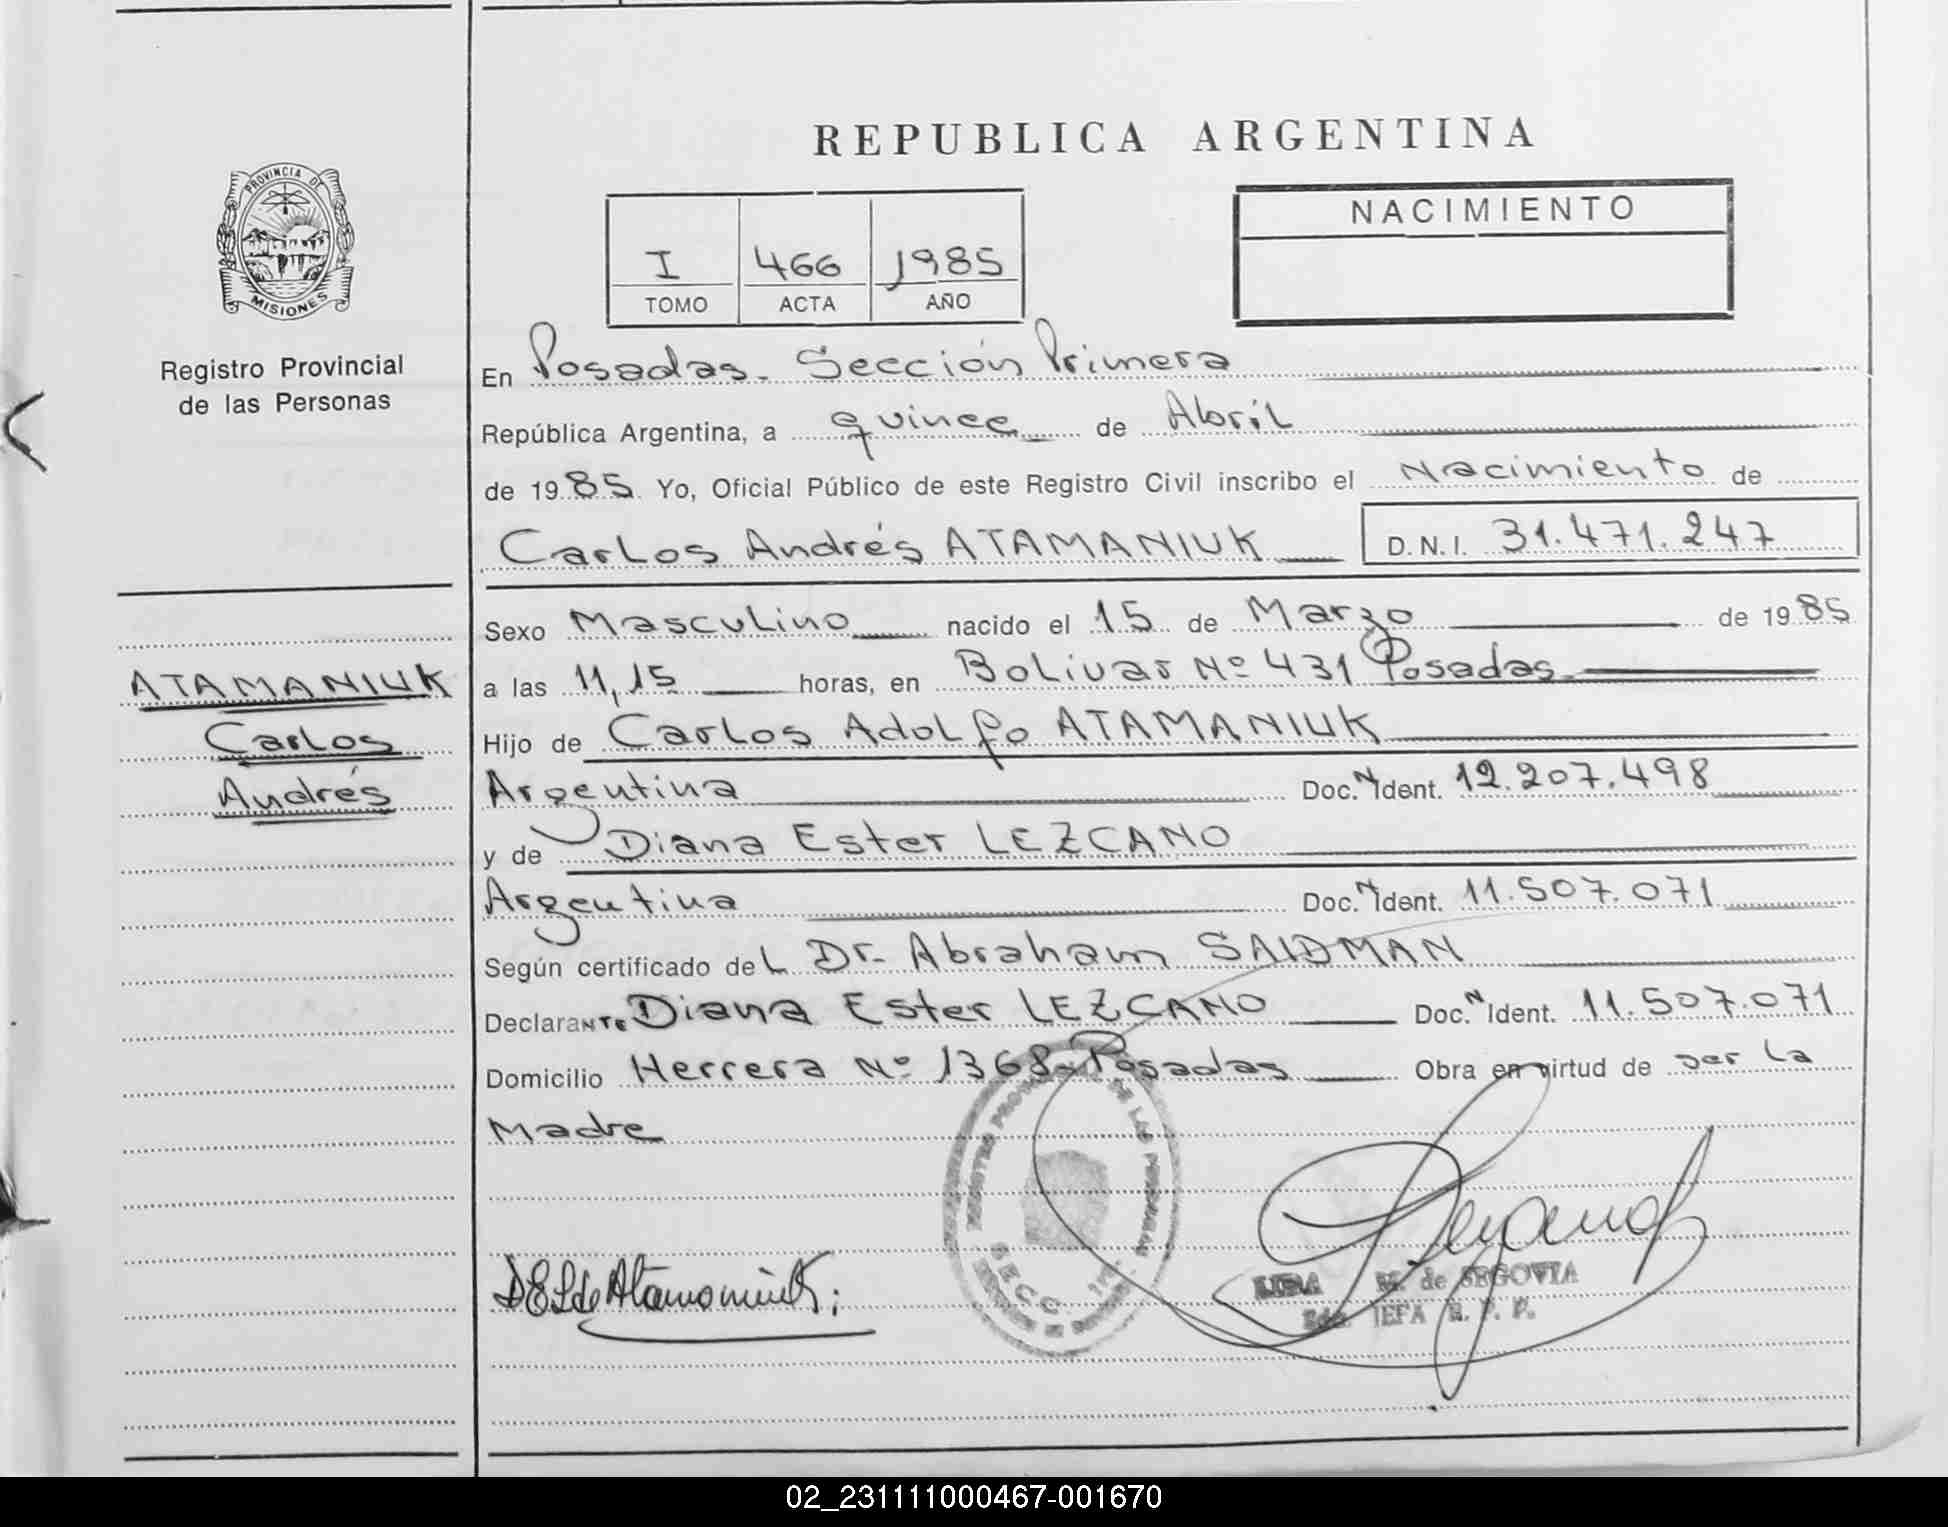 REPUBLICA ARGENTINA
PROVINCIA DE
MISIONES
Registro Provincial
de las Personas
I 466 1985
TOMO ACTA AÑO
NACIMIENTO
En Posadas. Sección Primera
República Argentina, a quince de Abril
de 1985 Yo, Oficial Público de este Registro Civil inscribo el Nacimiento de
Carlos Andrés ATAMANIUK D.N.I. 31.471.247
Sexo Masculino nacido el 15 de Marzo de 1985
a las 11,15 horas, en Bolivar Nº 431 Posadas
Hijo de Carlos Adolfo ATAMANIUK
Argentina Doc. N Ident. 12.207.498
y de Diana Ester LEZCANO
Argentina Doc. N Ident. 11.507.071
Según certificado del Dr. Abraham SAIDMAN
Declarante Diana Ester LEZCANO Doc. N Ident. 11.507.071
Domicilio Herrera Nº 1368-Posadas Obra en virtud de ser la
Madre
ATAMANIUK
Carlos
Andrés
DELde Atamaniuk
DE LAS PERSONAS
SECC. 1ra.
LIDA M. de SEGOVIA
JEFA R. P. P.
02_231111000467-001670